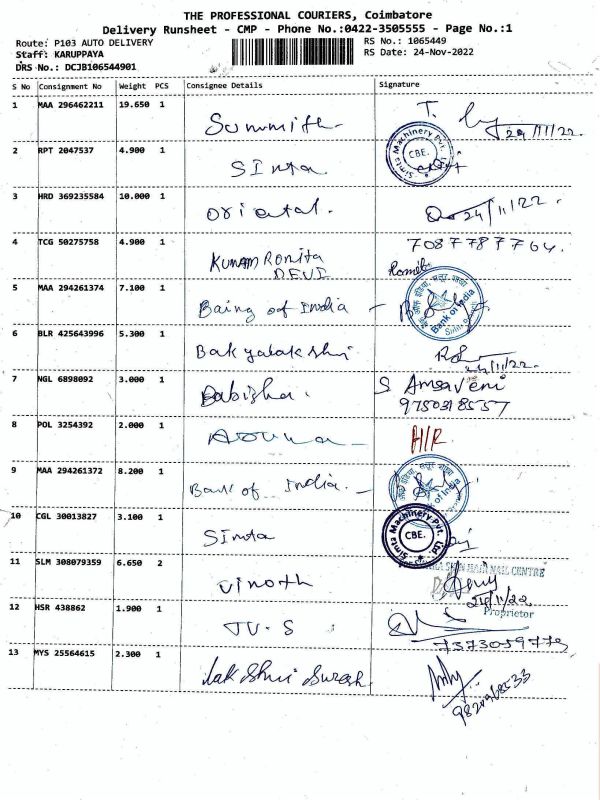 THE PROFESSIONAL COURIERS, Coimbatore
Delivery Runsheet - CMP - Phone No.:0422-3505555 - Page No.:1
Route: P103 AUTO DELIVERY
RS No.: 1065449
Staff: KARUPPAYA
RS Date: 24-Nov-2022
DRS No.: DCJB106544901
S No Consignment No Weight PCS Consignee Details Signature
1 MAA 296462211 19.650 1 T. 24/11/22
2 RPT 2047537 4.900 1 Simta Simta Machinery Pvt. Ltd. CBE.
3 HRD 369235584 10.000 1 Oriental. 24/11/22.
4 TCG 50275758 4.900 1 7087787764.
KUNAM Ronita
DEVI
5 MAA 294261374 7.100 1 Baing of India Bank of India
6 BLR 425643996 5.300 1 Bakyalakshmi
24/11/22.
7 NGL 6898092 3.000 1 Babisha. S Amsaveni
9750318557
8 POL 3254392 2.000 1 H/R
9 MAA 294261372 8.200 1 Bank of India. of India
10 CGL 30013827 3.100 1 Simta Simta Machinery Pvt. Ltd. CBE.
11 SLM 308079359 6.650 2 Vinoth NAIL CENTRE
24/11/22
Proprietor
12 HSR 438862 1.900 1 TV.S
7373059773
13 MYS 25564615 2.300 1 Lakshmi Suresh